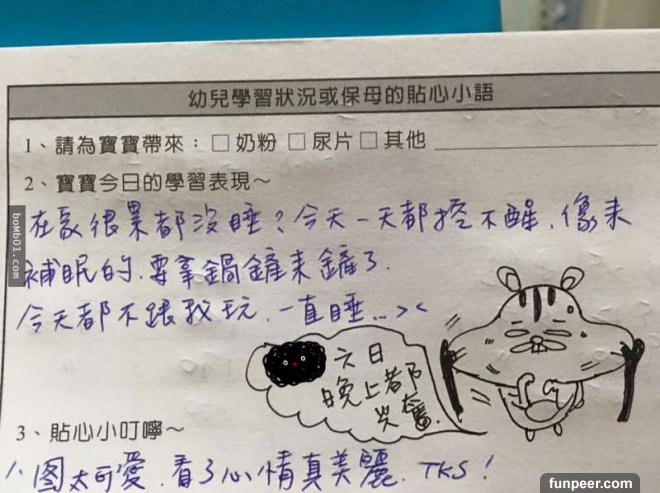 幼兒學習狀況或保母的貼心小語
1、請為寶寶帶來：□奶粉 □尿片 □其他
2、寶寶今日的學習表現～
在家很累都沒睡？今天一天都挖不醒，像來
補眠的，要拿鍋鏟來鏟了．
今天都不跟我玩，一直睡...><
六日
晚上都
哭奮．
3、貼心小叮嚀～
小圖太可愛，看了心情真美麗．TKS！
boMb01.com
funpeer.com